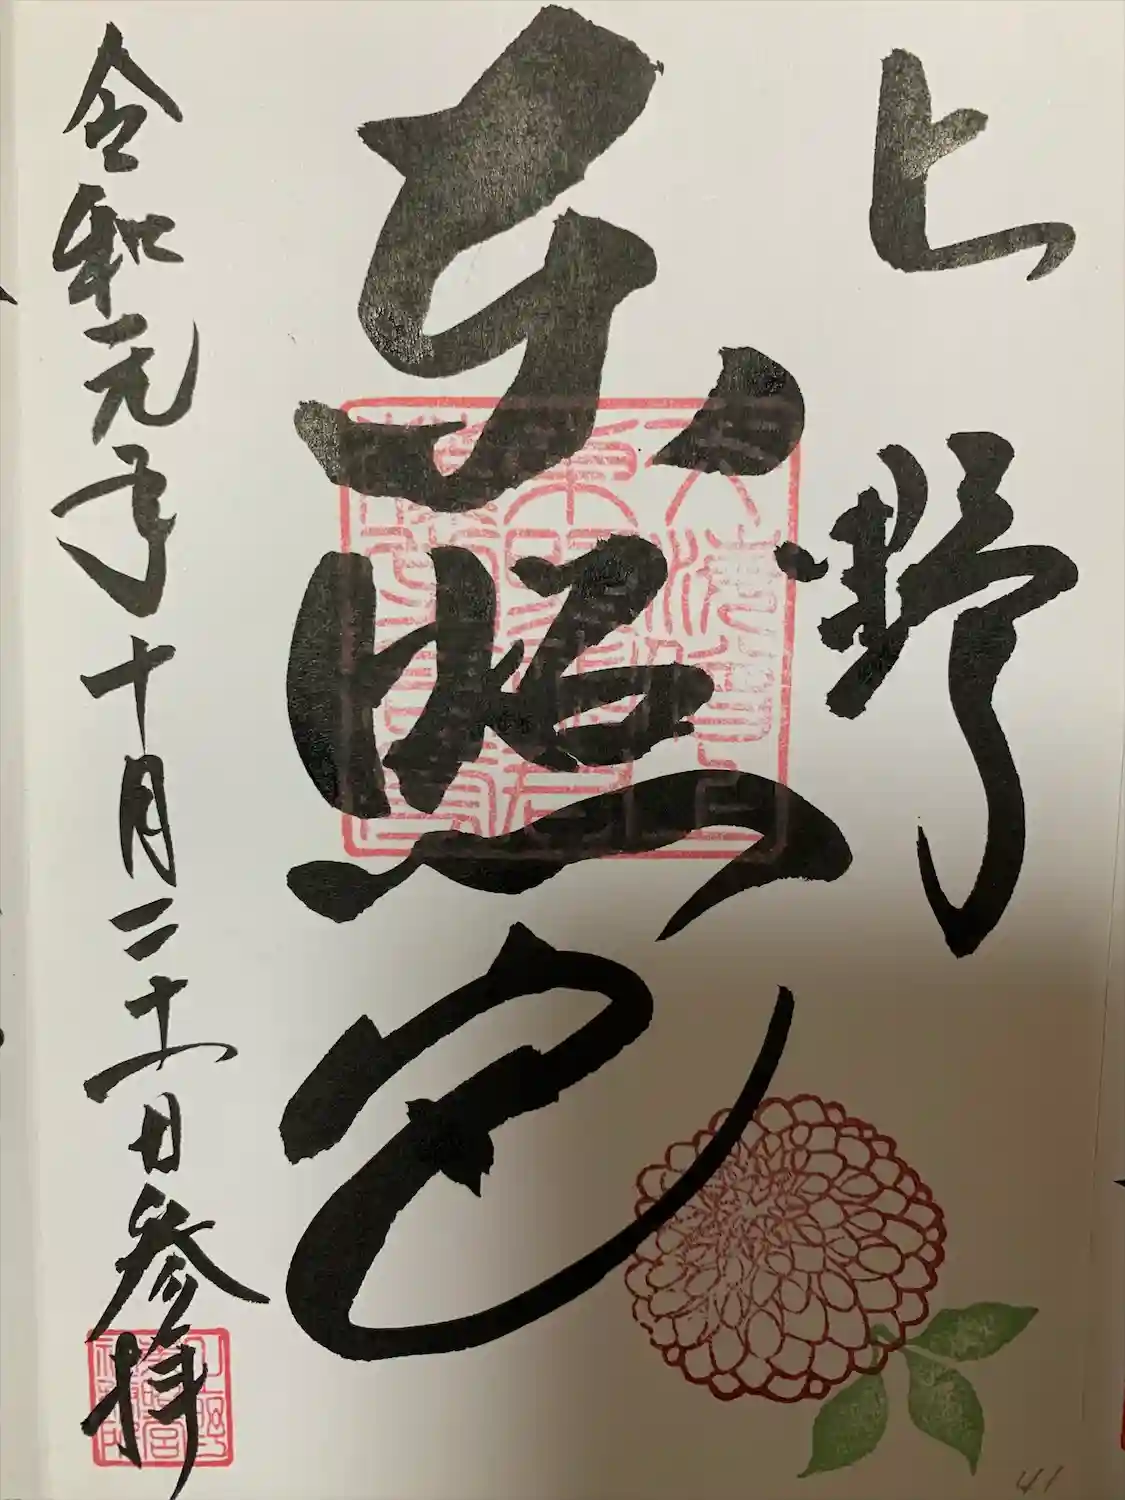 上野
東照宮
令和元年十月二十日参拝
41